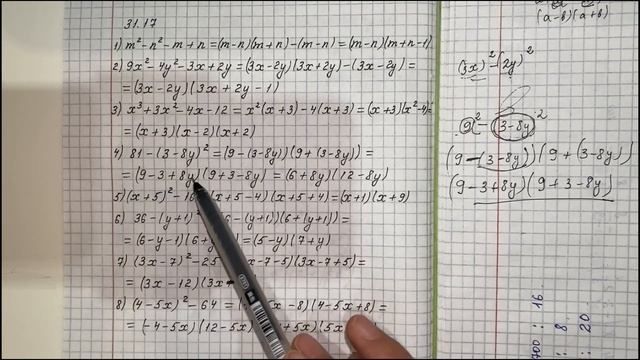 31.17
1) m² - n² - m + n = (m-n)(m+n) - (m-n) = (m-n)(m+n-1)
2) 9x² - 4y² - 3x + 2y = (3x-2y)(3x+2y) - (3x-2y) =
= (3x-2y)(3x+2y-1)
3) x³ + 3x² - 4x - 12 = x²(x+3) - 4(x+3) = (x+3)(x²-4) =
= (x+3)(x-2)(x+2)
4) 81 - (3-8y)² = (9-(3-8y))(9+(3-8y)) =
= (9-3+8y)(9+3-8y) = (6+8y)(12-8y)
5) (x+5)² - 16 (x+5-4)(x+5+4) = (x+1)(x+9)
6) 36 - (y+1)² 6-(y+1))(6+(y+1)) =
= (6-y-1)(6+ = (5-y)(7+y)
7) (3x-7)² - 25 x-7-5)(3x-7+5) =
= (3x-12)(3x
8) (4-5x)² - 64 = 5x-8)(4-5x+8) =
= (-4-5x)(12-5x) +5x)(5x
(a-b)(a+b)
(3x)² - (2y)²
9² - (3-8y)²
(9-(3-8y))(9+(3-8y)
(9-3+8y)(9+3-8y)
700 : 16
: 8
: 20